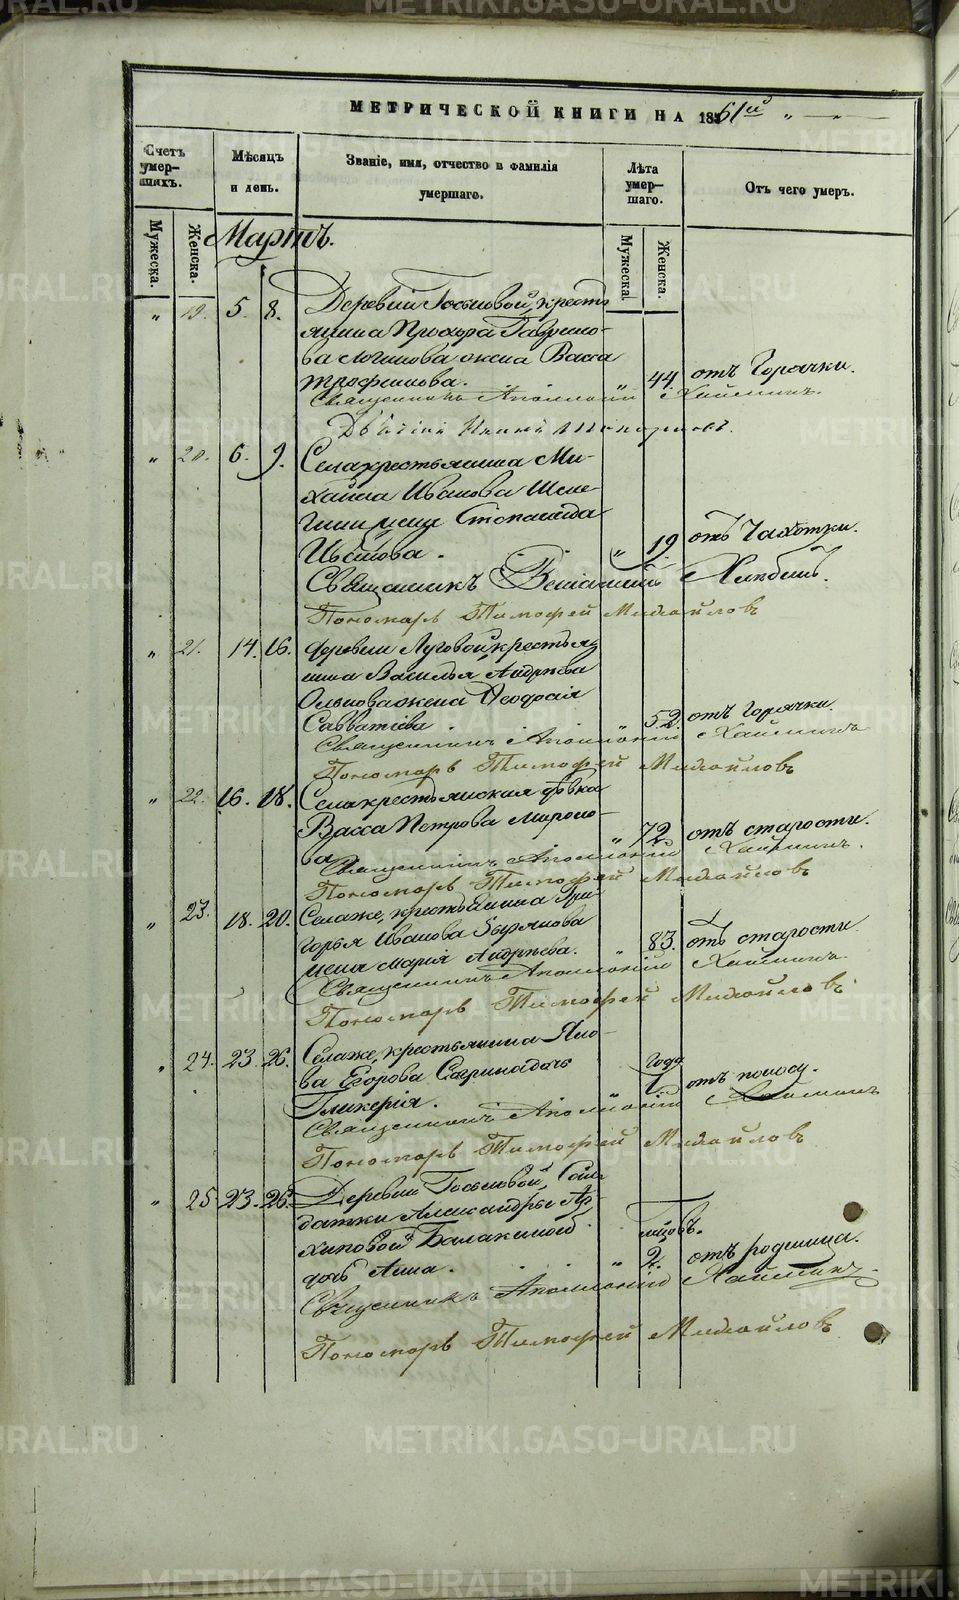 МЕТРИЧЕСКОЙ КНИГИ НА 1861й
Счетъ умершихъ.
Мѣсяцъ и день.
Званіе, имя, отчество и фамилія умершаго.
Лѣта умершаго.
Отъ чего умеръ.
Мужеска.
Женска.
Мартъ.
Мужеска.
Женска.
" 19. 5. 8. Деревни крестьянина Прохора Гаврилова Логинова жена Васса Трофимова. " 44 отъ Горячки.
Священникъ Аполлоній
" 20. 6. 9. Села крестьянина Михаила Иванова жена Степанида " 19. отъ Чахотки.
Священникъ
Пономарь Тимофей Михайловъ
" 21. 14. 16. деревни Луговой крестьянина Василья Андреева жена Феодосія Савватіева. " 52. отъ Горячки.
Священникъ Аполлоній
Пономарь Тимофей Михайловъ
" 22. 16. 18. Села крестьянская дѣвка Васса Петрова Миронова " 72. отъ старости.
Священникъ Аполлоній
Пономарь Тимофей Михайловъ
" 23. 18. 20. Села же, крестьянина Григорья Иванова жена Марія Андреева. " 83. отъ старости.
Священникъ Аполлоній
Пономарь Тимофей Михайловъ
" 24. 23. 26. Села же, крестьянина Якова Егорова дочь Гликерія. " года 1 отъ поносу.
Священникъ Аполлоній
Пономарь Тимофей Михайловъ
" 25 23. 26. Деревни Солдатки Александры Архиповой Балакиной дочь Анна. " 2. отъ родимца.
Священникъ Аполлоній
Пономарь Тимофей Михайловъ
METRIKI.GASO-URAL.RU